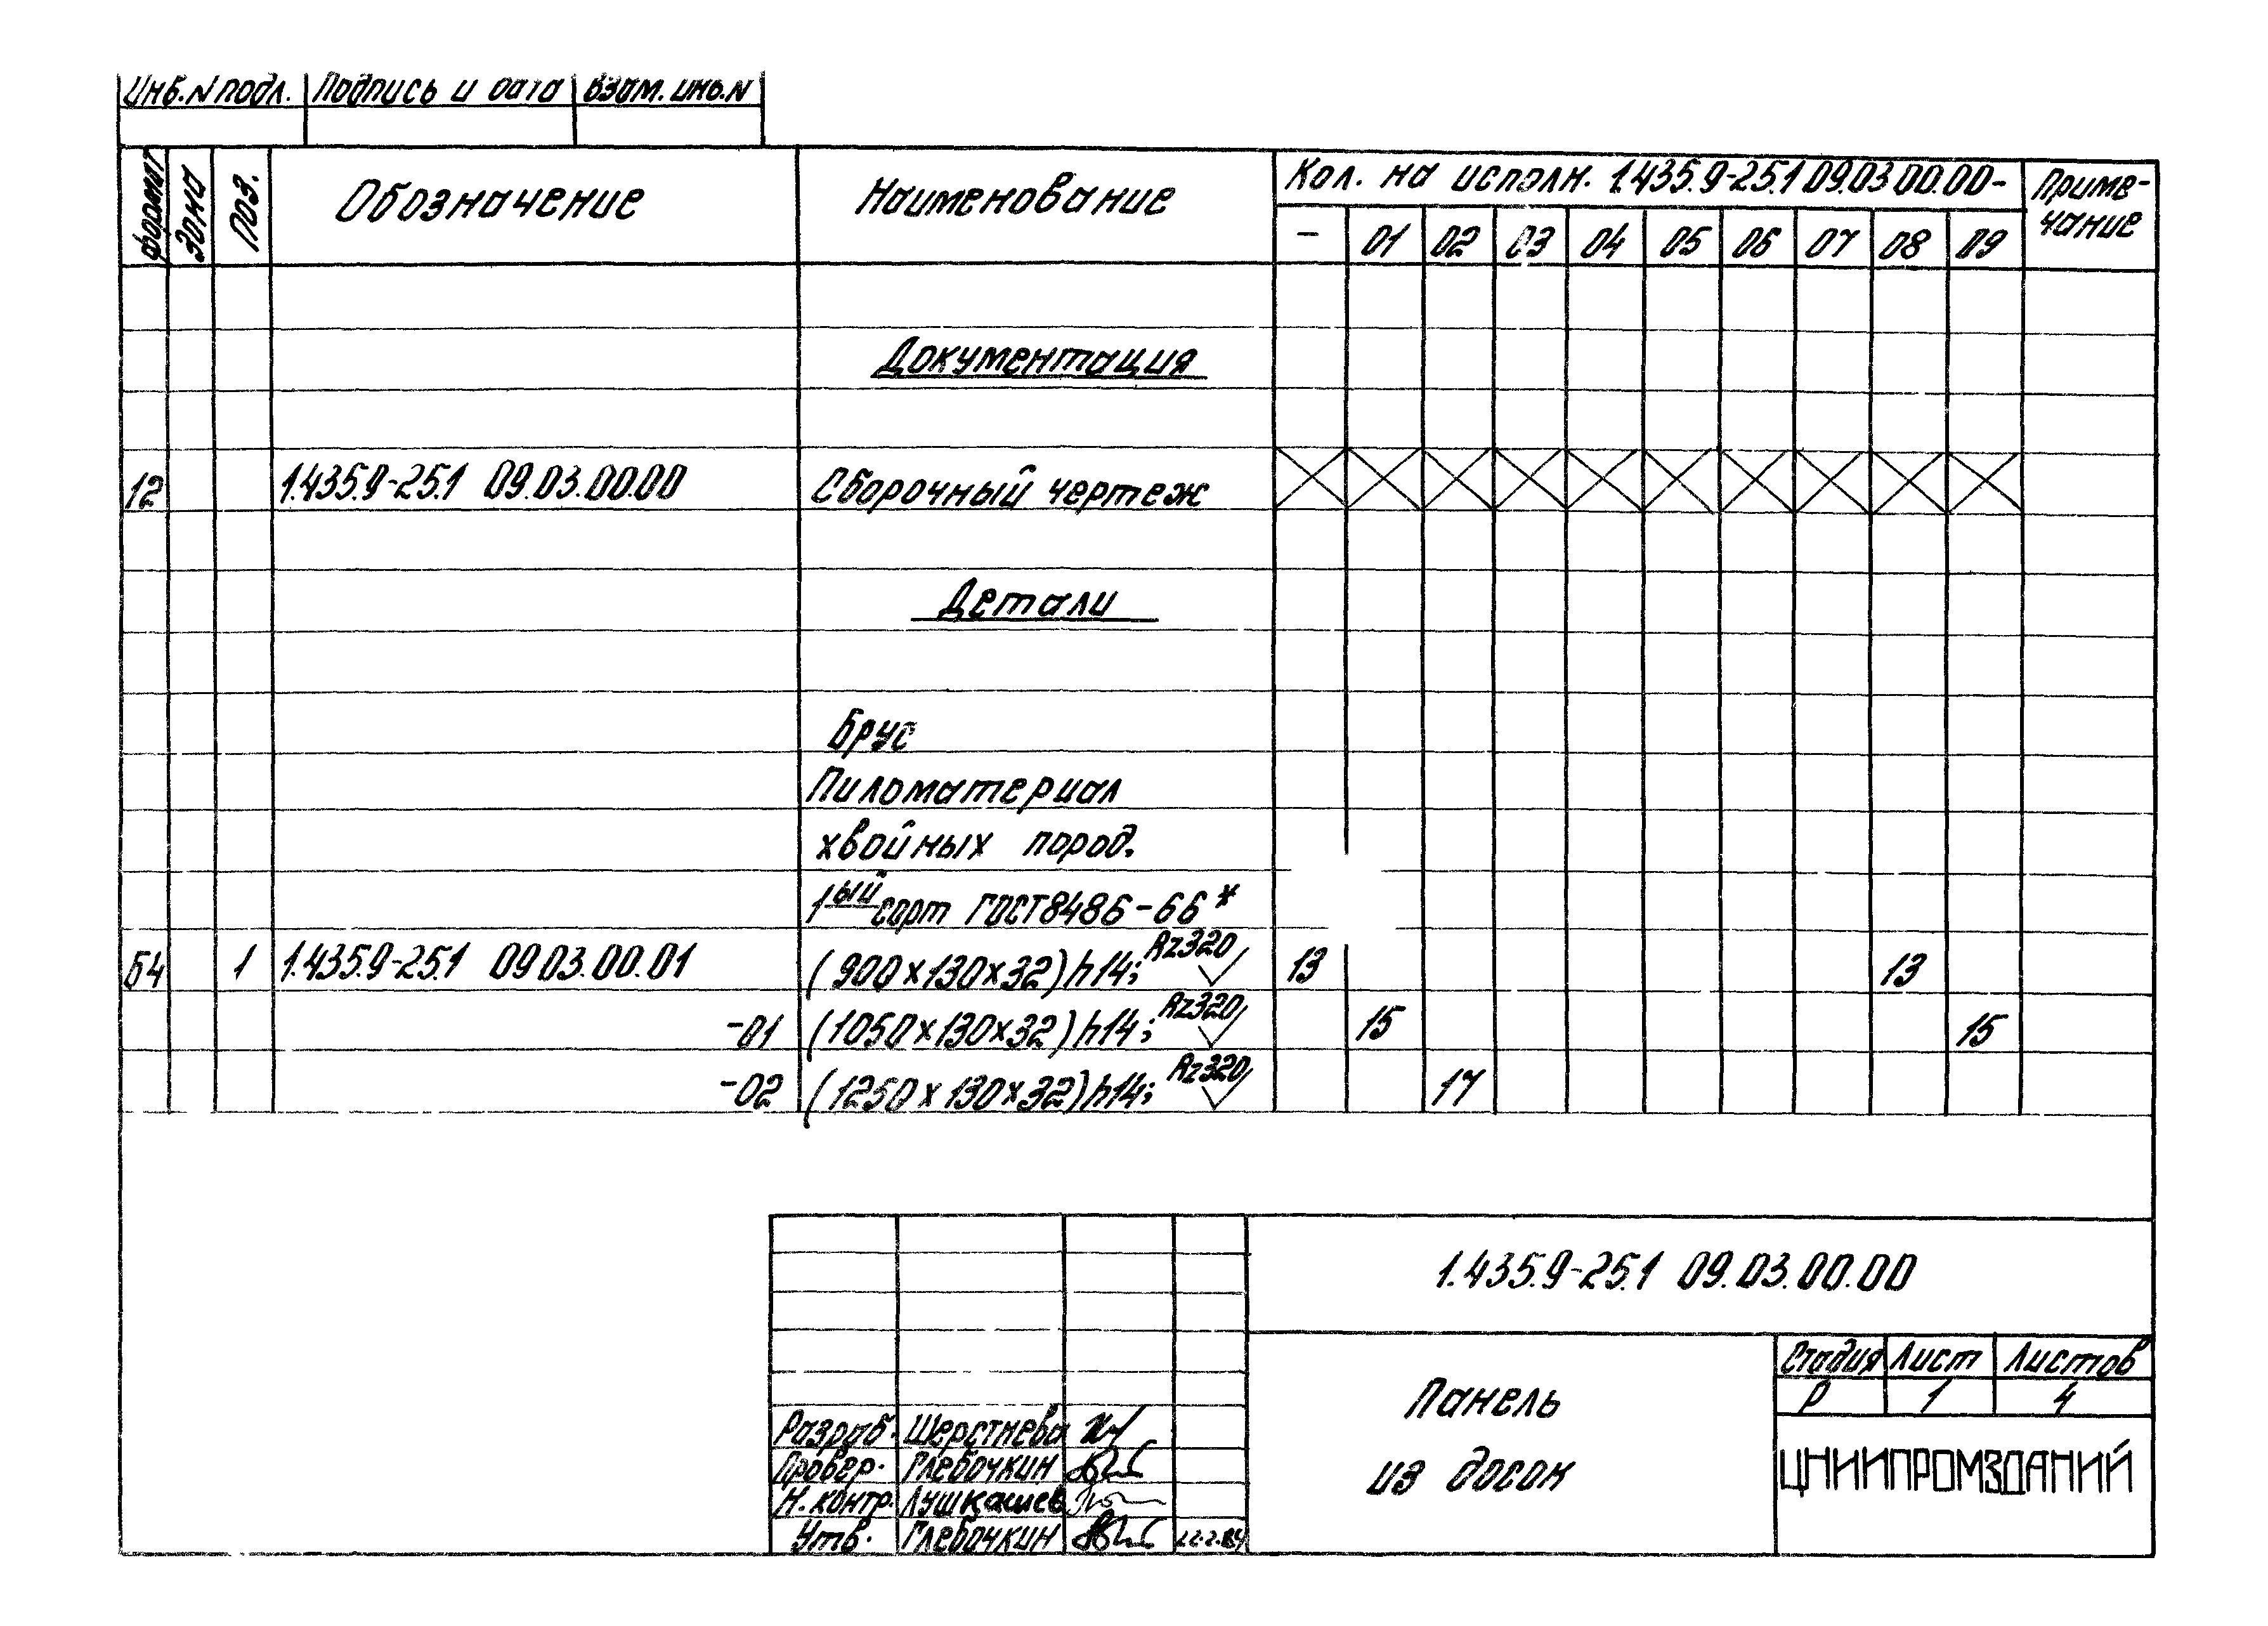 Инв.N подл. Подпись и дата Взам. инв.N
формат Зона Поз. Обозначение Наименование Кол. на исполн. 1.435.9-25.1 09.03 00.00- Приме-
чание
- 01 02 03 04 05 06 07 08 09
Документация
12 1.435.9-25.1 09.03.00.00 Сборочный чертеж
Детали
Брус
Пиломатериал
хвойных пород.
1ый сорт ГОСТ 8486-66*
Б4 1 1.435.9-25.1 09 03.00.01 (900×130×32)h14; Rz320 13 13
-01 (1050×130×32)h14; Rz320 15 15
-02 (1250×130×32)h14; Rz320 17
1.435.9-25.1 09.03.00.00
Панель
из досок
Стадия Лист Листов
Р 1 4
ЦНИИПРОМЗДАНИЙ
Разраб. Шерстнева
Провер. Глебочкин
Н. контр. Лушкашев
Утв. Глебочкин